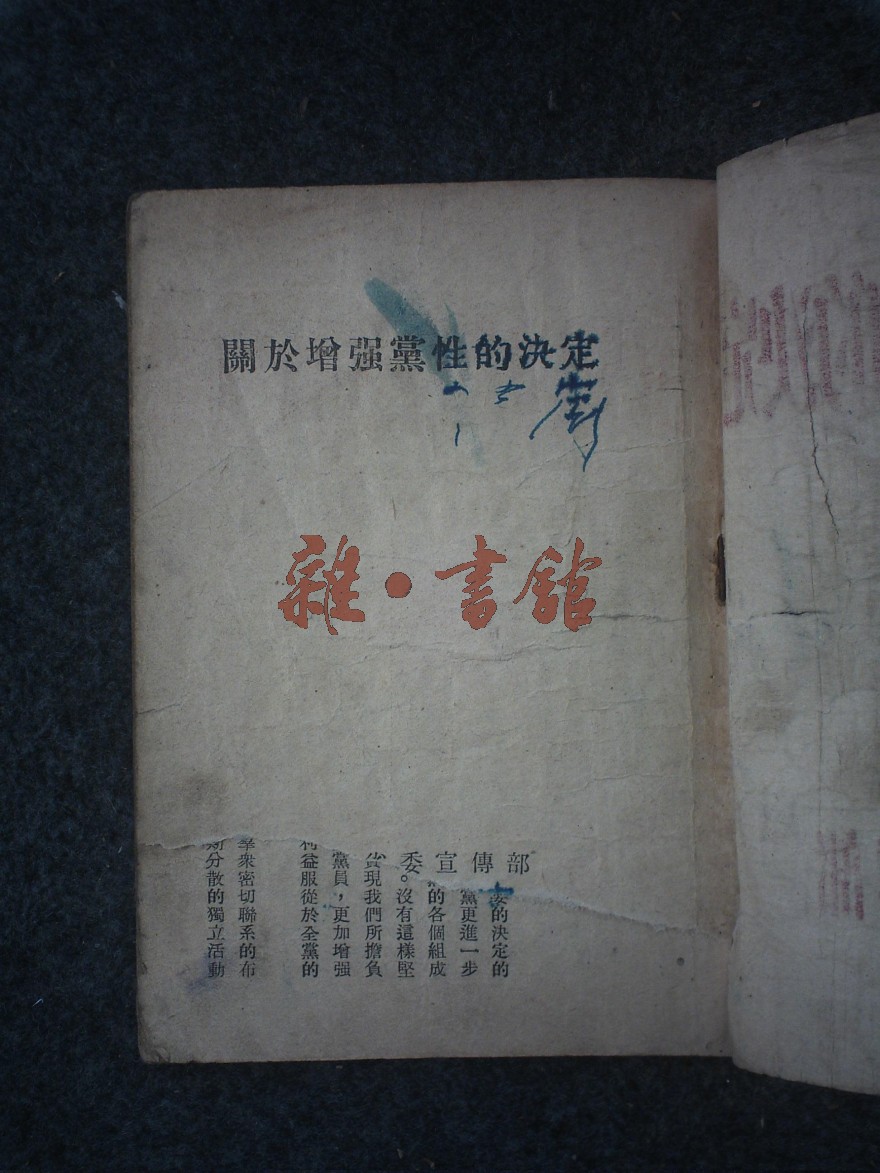 關於增强黨性的決定
雜·書館
委宣傳部
委的決定的
黨更進一步
的各個組成
。沒有這樣堅
現我們所擔負
黨員，更加增强
利益服從於全黨的
羣衆密切聯系的布
期分散的獨立活動